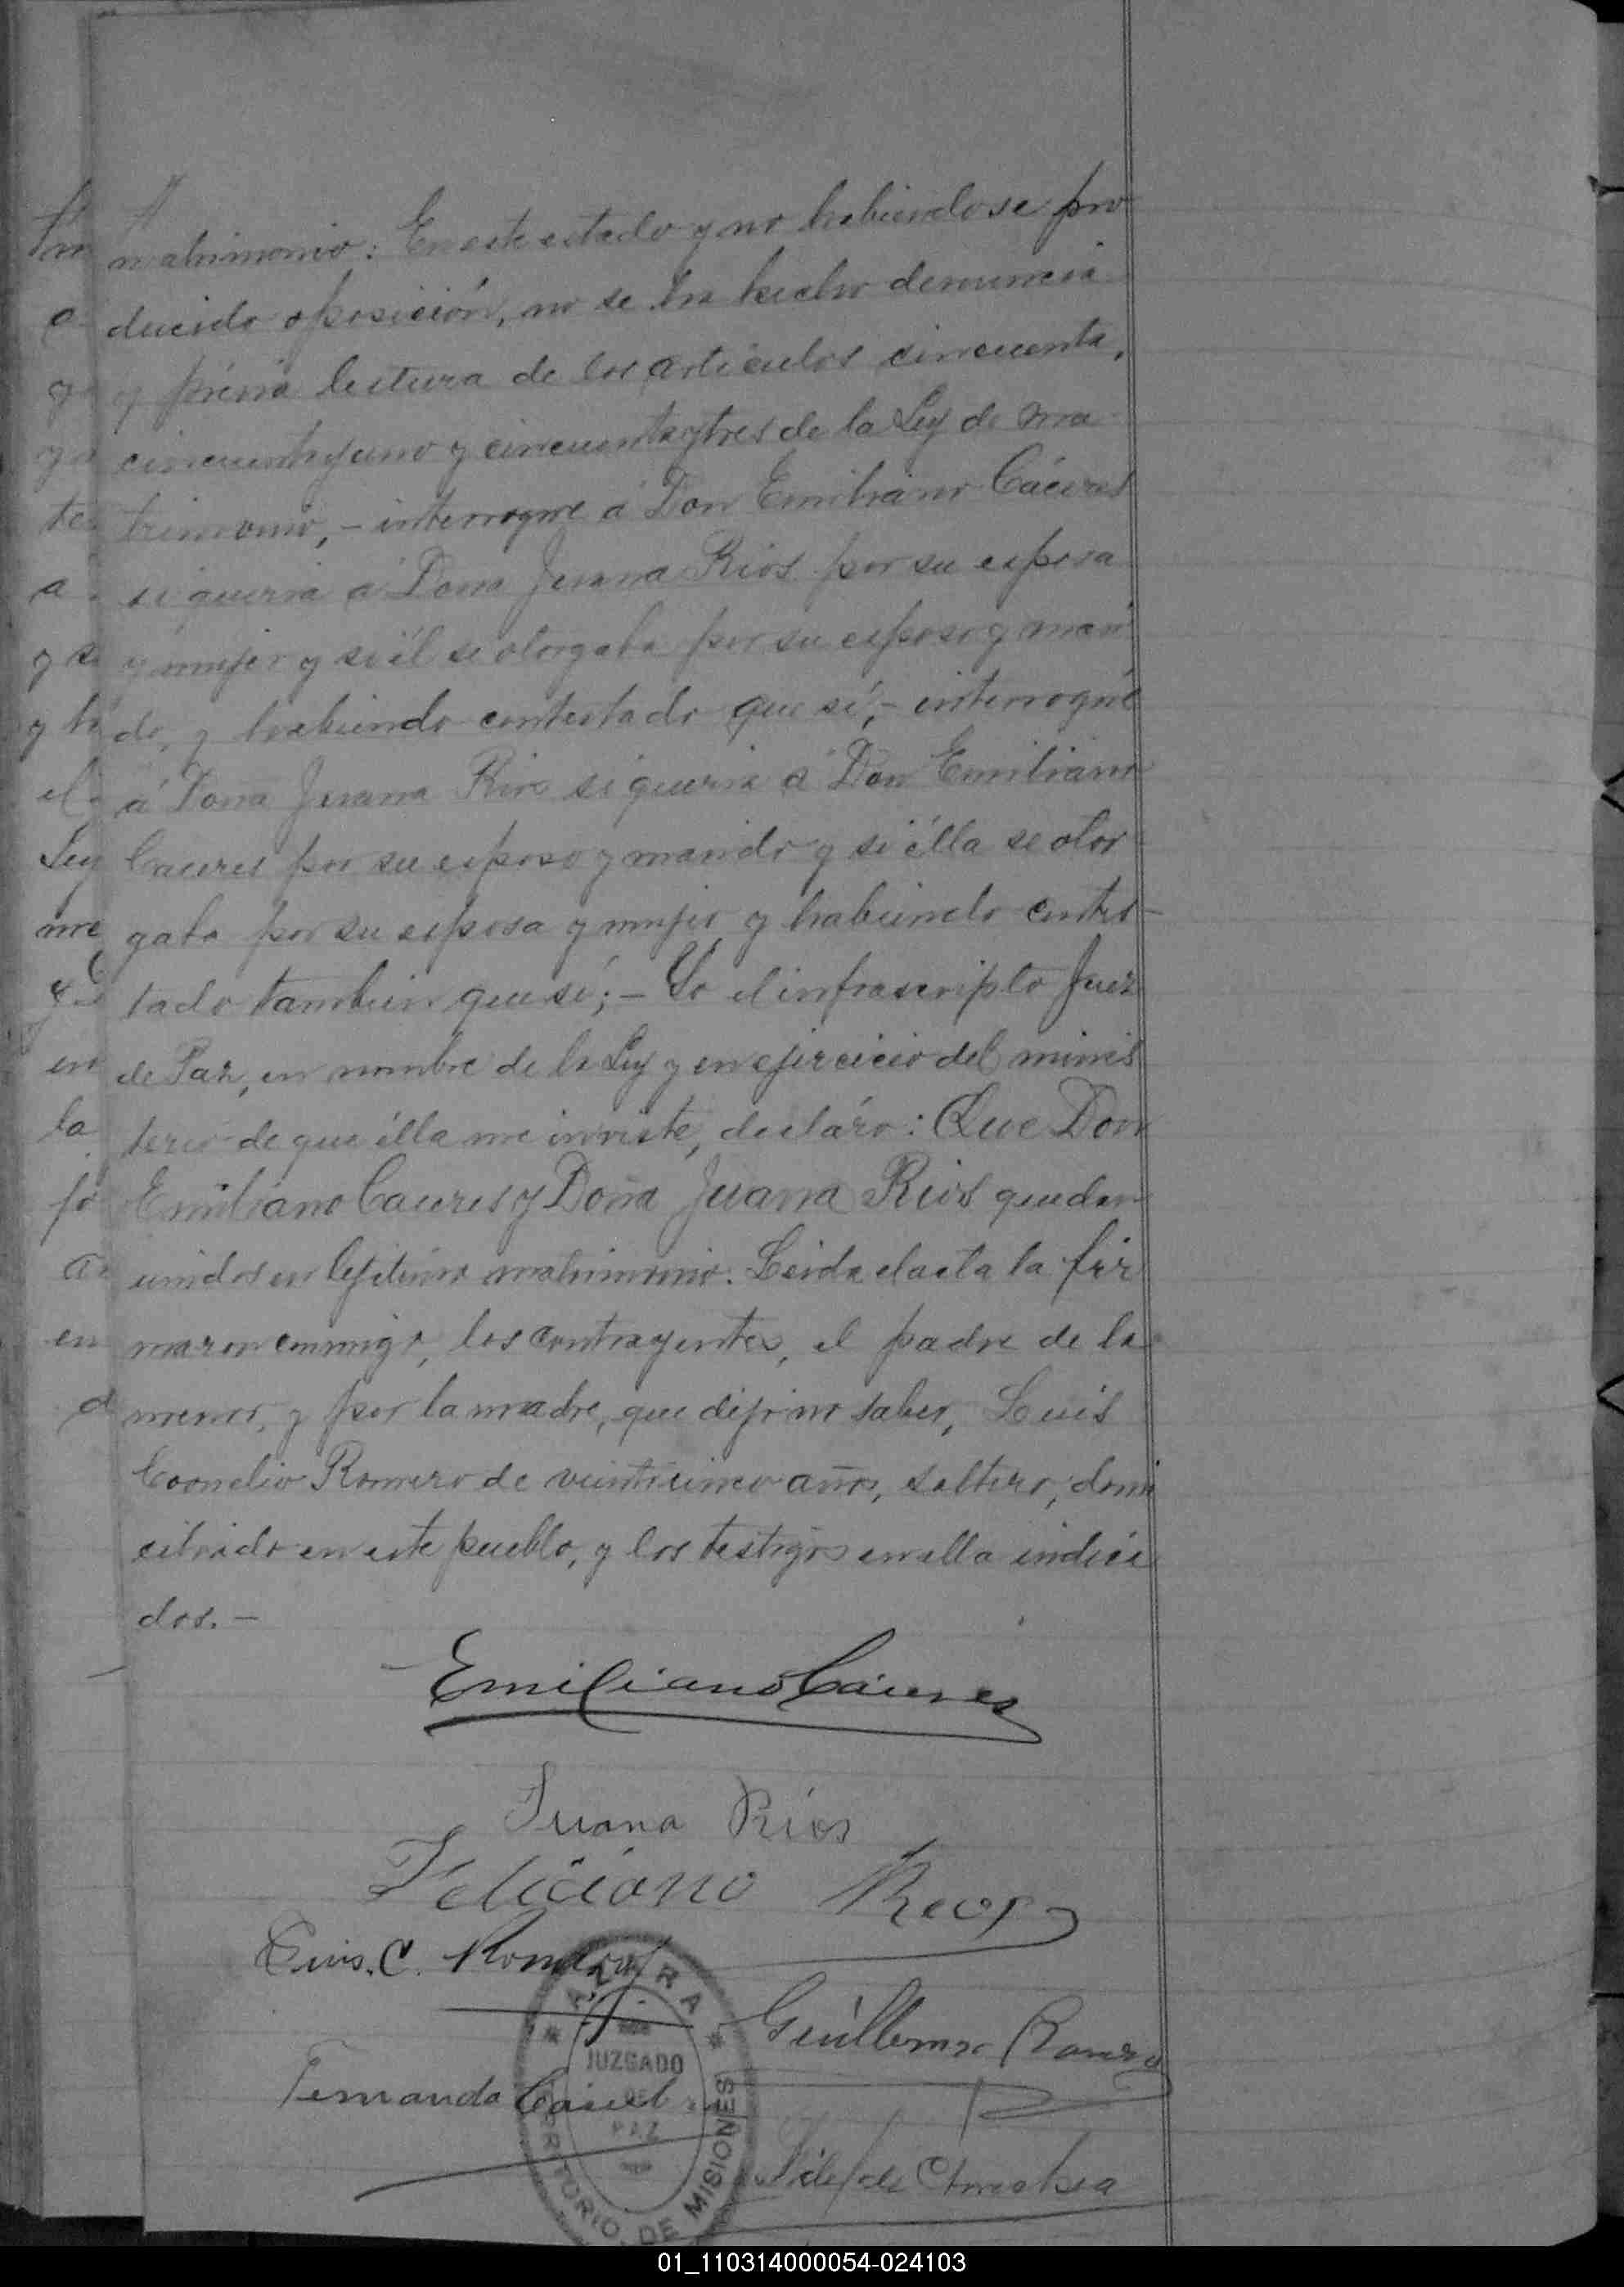 matrimonio: En este estado y no habiendose pro
ducido oposición, no se ha hecho denuncia
y prévia lectura de los articulos cincuenta,
cincuentayuno y cincuentaytres de la Ley de ma
trimonio, - interrogué á Don Emiliano Cáceres
si queria á Doña Juana Rios por su esposa
y mujer y si él se otorgaba por su esposo y mari
do, y habiendo contestado que sí; - interrogué
á Doña Juana Rios si queria á Don Emiliano
Caceres por su esposo y marido y si élla se otor
gaba por su esposa y mujer y habiendo contes-
tado tambien que sí; - Yo el infrascripto Juez
de Paz, en nombre de la Ley y en ejercicio del minis
terio de que élla me inviste, decláro: Que Don
Emiliano Caceres y Doña Juana Rios quedan
unidos en lejitimo matrimonio. Leida el acta la fir
maron conmigo, los contrayentes, el padre de la
menor, y por la madre, que dijo no saber, Luis
Cornelio Romero de veinticinco años, soltero, domi
ciliado en este pueblo, y los testigos en ella indica
dos. -
Emiliano Cáceres
Juana Rios
Feliciano Rios
Luis. C. Romero
Guillermo Romero
Fernando
AZARA
JUZGADO
DE
PAZ
TERRITORIO DE MISIONES
01_110314000054-024103